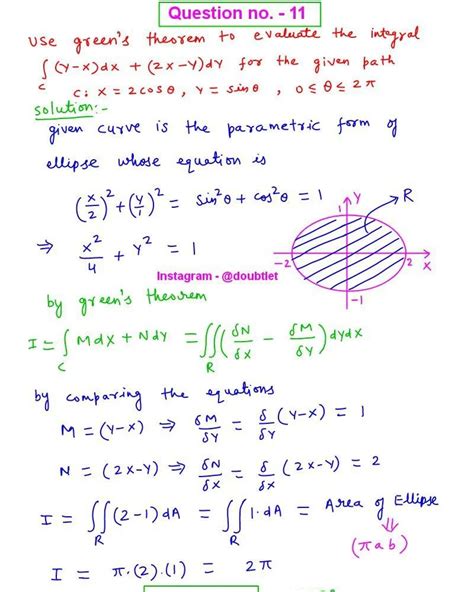 Question no. - 11
Use green's theorem to evaluate the integral
∫_C (y-x)dx + (2x-y)dy for the given path
C: x = 2cosθ, y = sinθ, 0 ≤ θ ≤ 2π
solution:-
given curve is the parametric form of
ellipse whose equation is
(x/2)² + (y/1)² = sin²θ + cos²θ = 1
⇒ x²/4 + y² = 1
1 Y R
-2 2 X
-1
Instagram - @doubtlet
by green's theorem
I = ∫_C Mdx + Ndy = ∬_R (δN/δx - δM/δy) dydx
by comparing the equations
M = (y-x) ⇒ δM/δy = δ/δy (y-x) = 1
N = (2x-y) ⇒ δN/δx = δ/δx (2x-y) = 2
I = ∬_R (2-1) dA = ∬_R 1·dA = Area of Ellipse
⇓
(πab)
I = π·(2)·(1) = 2π